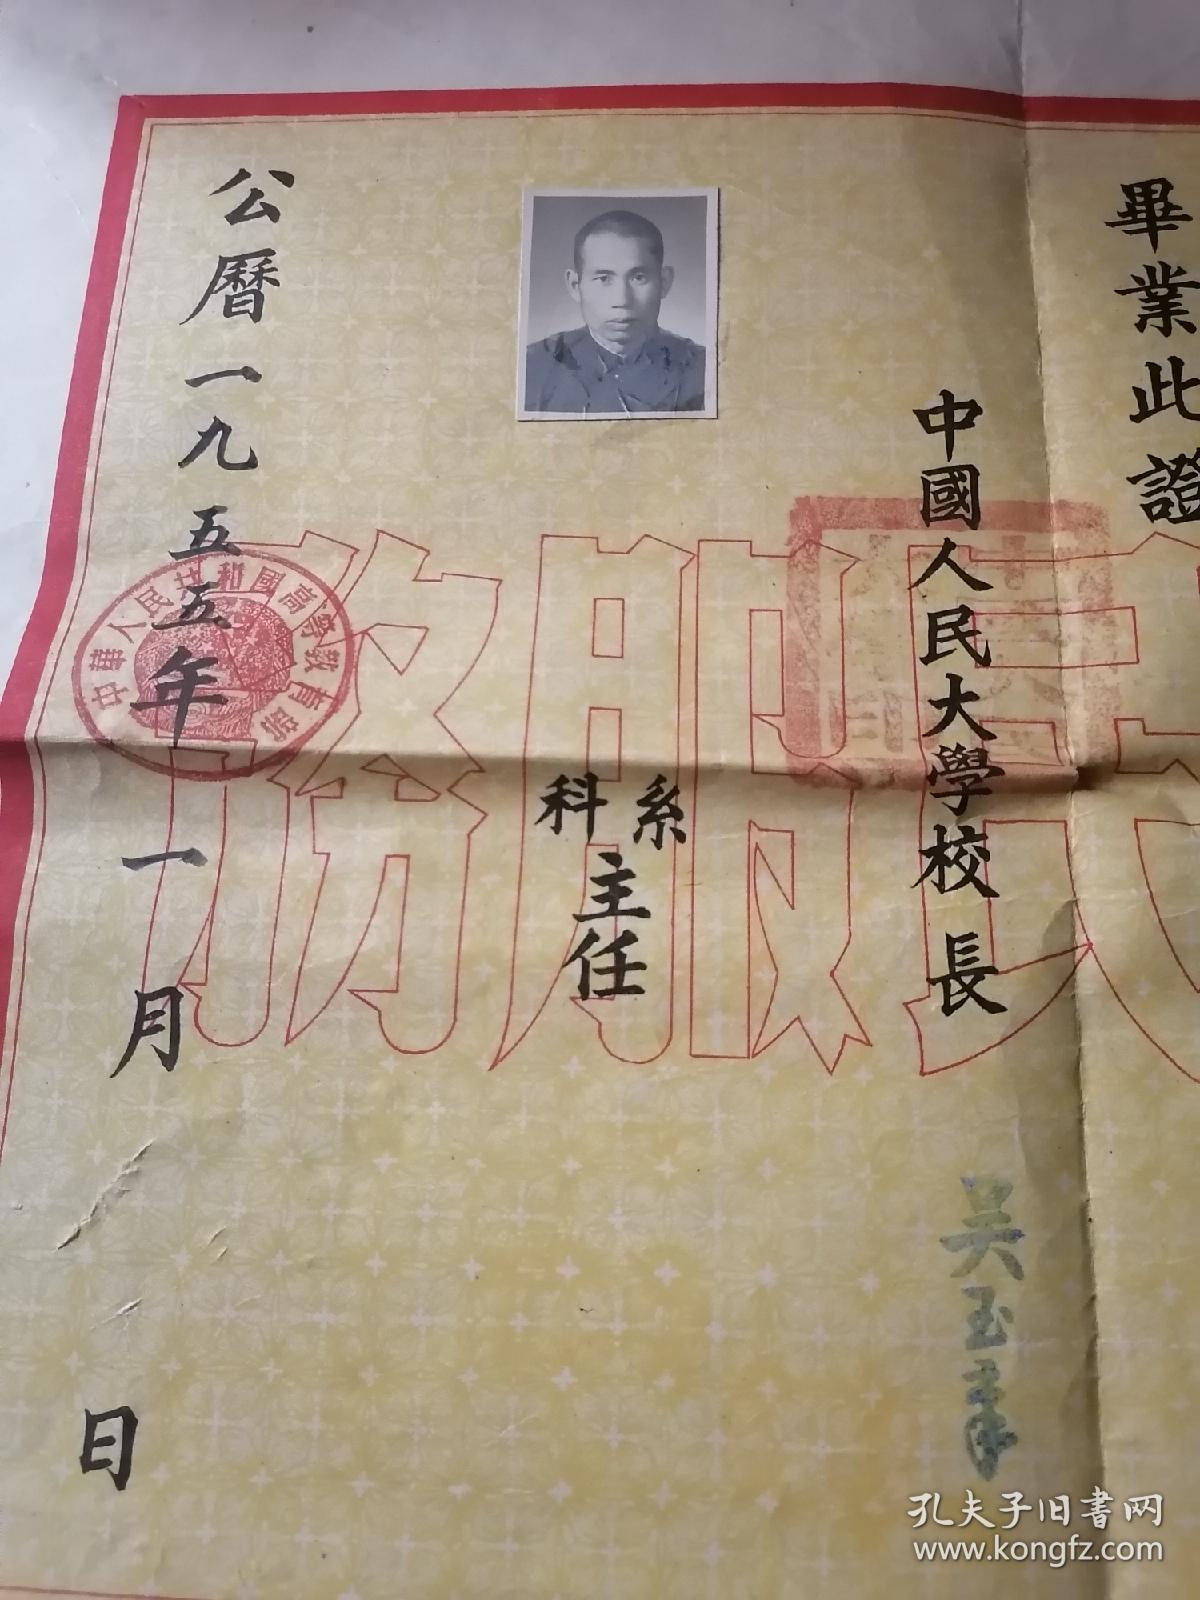 畢業此證
中國人民大學校長
吴玉章
系
科
主任
公曆一九五五年一月 日
中華人民共和國高等教育部
民服務
孔夫子旧书网
www.kongfz.com